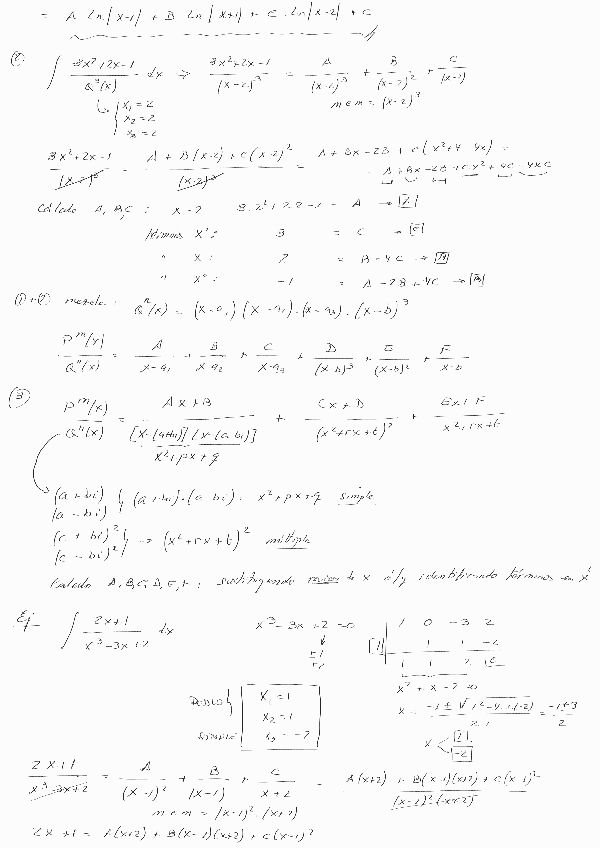 = A ln|x-1| + B ln|x+1| + C · ln|x-2| + C
② ∫ (3x²+2x-1)/(Qⁿ(x)) dx ⇒ (3x²+2x-1)/(x-2)³ = A/(x-2)³ + B/(x-2)² + C/(x-2)
x₁ = 2
x₂ = 2
x₃ = 2
m c m = (x-2)³
(3x²+2x-1)/(x-2)³ = (A + B(x-2) + C(x-2)²)/(x-2)³ = A + Bx - 2B + C(x²+4-4x) =
= A + Bx - 2B + Cx² + 4C - 4xC
Cálculo A, B, C : x=2 3·2²+2·2-1 = A →
términos x² : 3 = C →
" x : 2 = B-4C →
" x⁰ : -1 = A-2B+4C →
①+② mezcla : Qⁿ(x) = (x-a₁)(x-a₂)·(x-a₃)·(x-b)³
Pᵐ(x)/Qⁿ(x) = A/(x-a₁) + B/(x-a₂) + C/(x-a₃) + D/(x-b)³ + E/(x-b)² + F/(x-b)
③ Pᵐ(x)/Qⁿ(x) = (Ax+B)/([x-(a+bi)][x-(a-bi)]) + (Cx+D)/(x²+rx+t)² + (Ex+F)/(x²+rx+t)
x²+px+q
(a+bi)
(a-bi) (a+bi)·(a-bi) = x²+px+q simple
(c+bi)²
(c-bi)² → (x²+rx+t)² múltiple
Cálculo A,B,C,D,E,F : sustituyendo x ó/y identificando términos en x
Ej- ∫ (2x+1)/(x³-3x+2) dx x³-3x+2=0
1 0 -3 2
[1] 1 1 -2
1 1 -2 0
x²+x-2=0
x = (-1±√(1²-4·1·(-2)))/(2·1) = (-1±3)/2
x 1
-2
DOBLE x₁ = 1
x₂ = 1
SIMPLE x₃ = -2
(2x+1)/(x³-3x+2) = A/(x-1)² + B/(x-1) + C/(x+2) = (A(x+2) + B(x-1)(x+2) + C(x-1)²)/((x-1)²·(x+2))
m c m = (x-1)²·(x+2)
2x+1 = A(x+2) + B(x-1)(x+2) + C(x-1)²